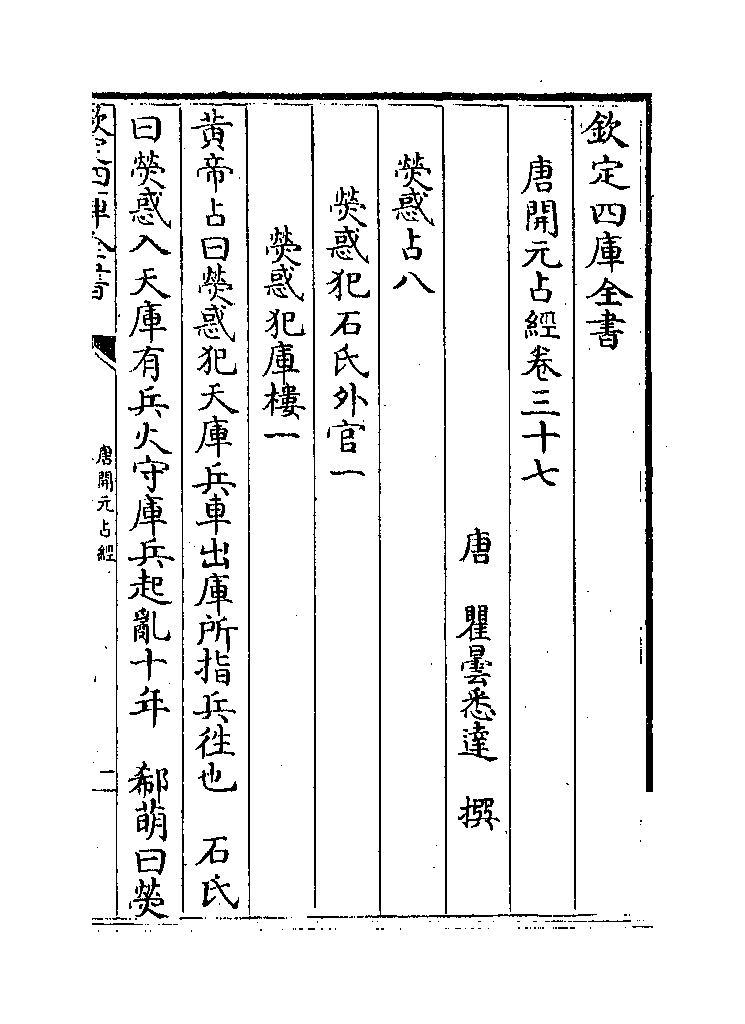 欽定四庫全書
唐開元占經卷三十七
唐　瞿曇悉達　撰
熒惑占八
熒惑犯石氏外官一
熒惑犯庫樓一
黃帝占曰熒惑犯天庫兵車出庫所指兵徃也　石氏
曰熒惑入天庫有兵火守庫兵起亂十年　郗萌曰熒
欽定四庫全書
唐開元占經